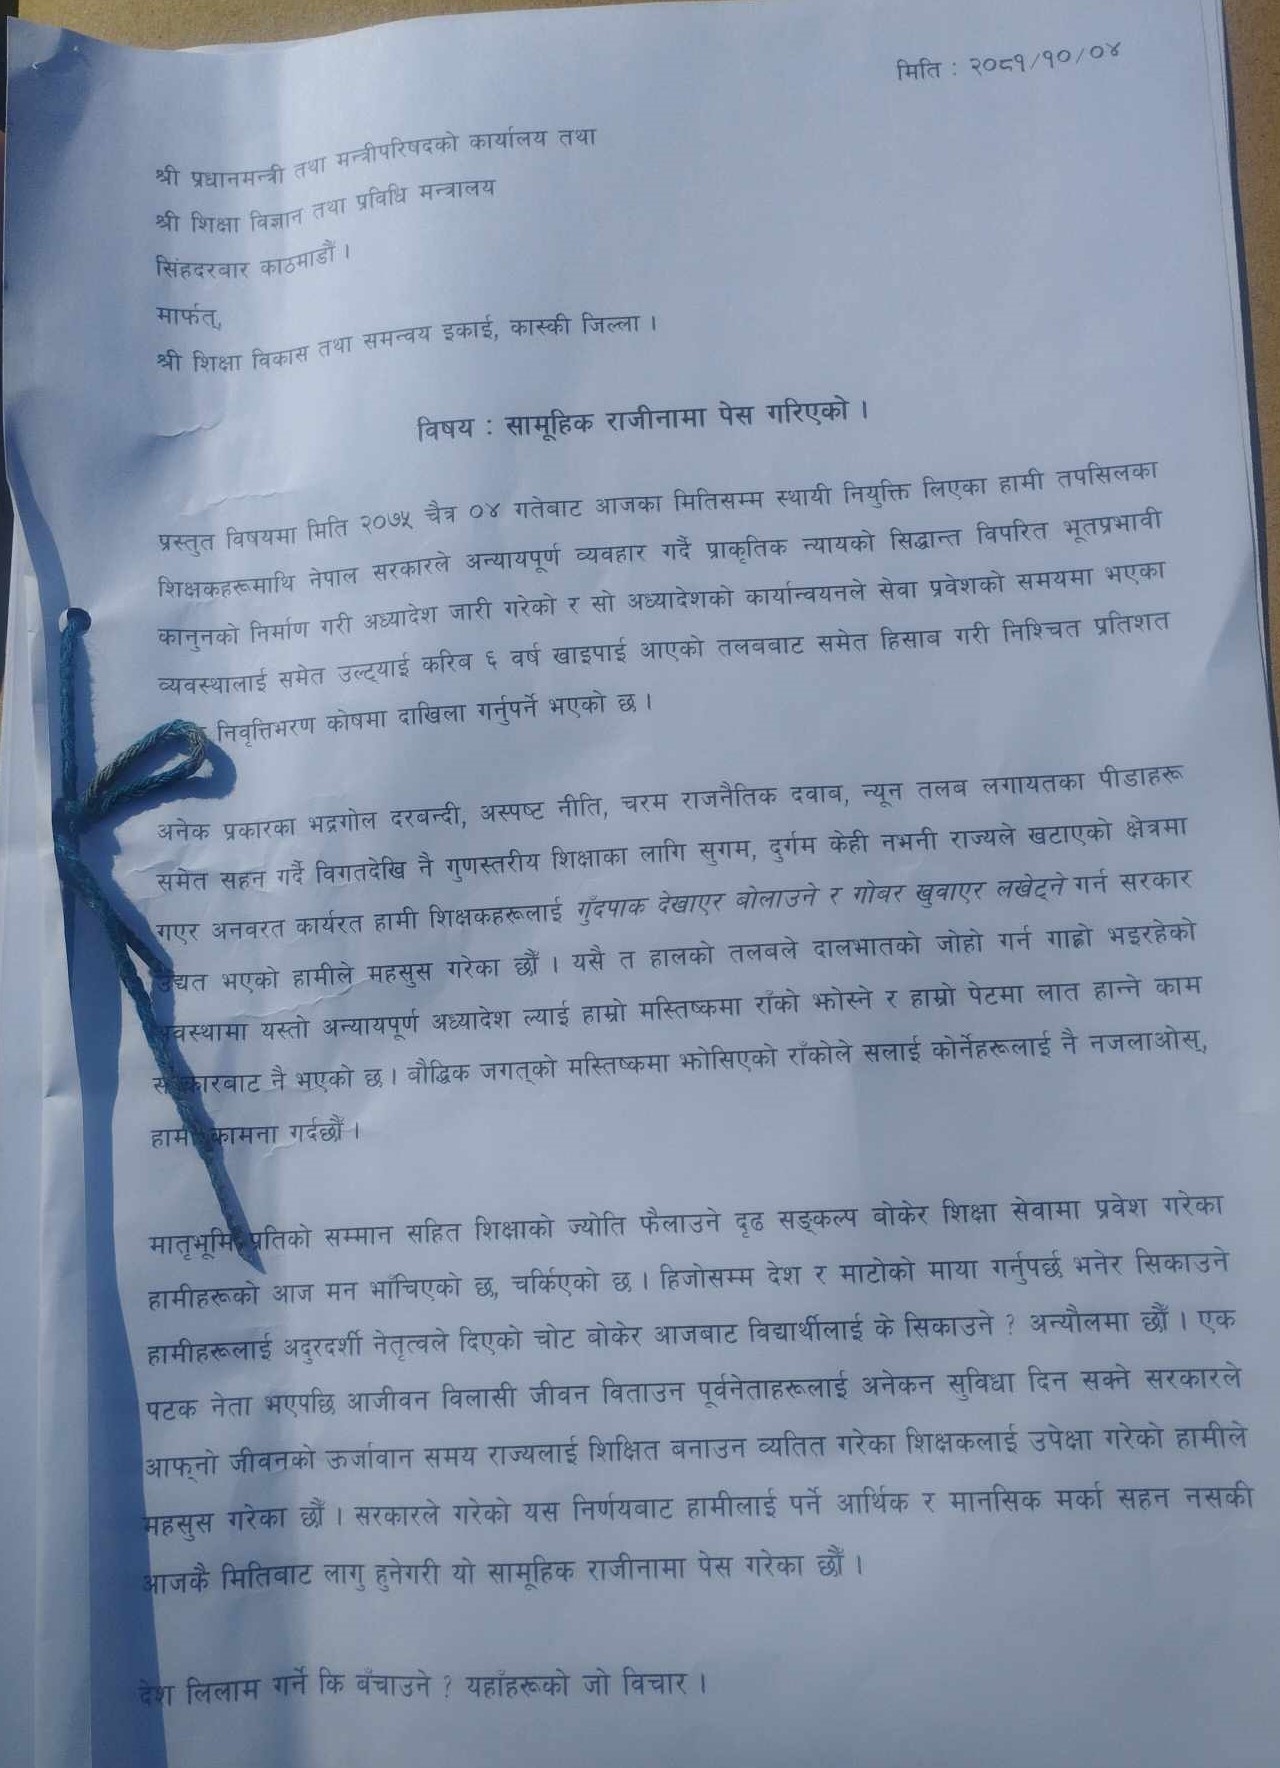 मिति : २०८१/१०/०४
श्री प्रधानमन्त्री तथा मन्त्रीपरिषदको कार्यालय तथा
श्री शिक्षा विज्ञान तथा प्रविधि मन्त्रालय
सिंहदरबार काठमाडौं ।
मार्फत्,
श्री शिक्षा विकास तथा समन्वय इकाई, कास्की जिल्ला ।
विषय : सामूहिक राजीनामा पेस गरिएको ।
प्रस्तुत विषयमा मिति २०७५ चैत्र ०४ गतेबाट आजका मितिसम्म स्थायी नियुक्ति लिएका हामी तपसिलका
शिक्षकहरूमाथि नेपाल सरकारले अन्यायपूर्ण व्यवहार गर्दै प्राकृतिक न्यायको सिद्धान्त विपरित भूतप्रभावी
कानुनको निर्माण गरी अध्यादेश जारी गरेको र सो अध्यादेशको कार्यान्वयनले सेवा प्रवेशको समयमा भएका
व्यवस्थालाई समेत उल्ट्याई करिब ६ वर्ष खाइपाई आएको तलबबाट समेत हिसाब गरी निश्चित प्रतिशत
निवृत्तिभरण कोषमा दाखिला गर्नुपर्ने भएको छ ।
अनेक प्रकारका भद्रगोल दरबन्दी, अस्पष्ट नीति, चरम राजनैतिक दवाब, न्यून तलब लगायतका पीडाहरू
समेत सहन गर्दै विगतदेखि नै गुणस्तरीय शिक्षाका लागि सुगम, दुर्गम केही नभनी राज्यले खटाएको क्षेत्रमा
गएर अनवरत कार्यरत हामी शिक्षकहरूलाई गुँदपाक देखाएर बोलाउने र गोबर खुवाएर लखेट्ने गर्न सरकार
उद्यत भएको हामीले महसुस गरेका छौं । यसै त हालको तलबले दालभातको जोहो गर्न गाह्रो भइरहेको
अवस्थामा यस्तो अन्यायपूर्ण अध्यादेश ल्याई हाम्रो मस्तिष्कमा राँको झोस्ने र हाम्रो पेटमा लात हान्ने काम
सरकारबाट नै भएको छ । बौद्धिक जगत्को मस्तिष्कमा झोसिएको राँकोले सलाई कोर्नेहरूलाई नै नजलाओस्,
हामी कामना गर्दछौं ।
मातृभूमि प्रतिको सम्मान सहित शिक्षाको ज्योति फैलाउने दृढ सङ्कल्प बोकेर शिक्षा सेवामा प्रवेश गरेका
हामीहरूको आज मन भाँचिएको छ, चर्किएको छ । हिजोसम्म देश र माटोको माया गर्नुपर्छ भनेर सिकाउने
हामीहरूलाई अदुरदर्शी नेतृत्वले दिएको चोट बोकेर आजबाट विद्यार्थीलाई के सिकाउने ? अन्यौलमा छौं । एक
पटक नेता भएपछि आजीवन विलासी जीवन विताउन पूर्वनेताहरूलाई अनेकन सुविधा दिन सक्ने सरकारले
आफ्‌नो जीवनको ऊर्जावान समय राज्यलाई शिक्षित बनाउन व्यतित गरेका शिक्षकलाई उपेक्षा गरेको हामीले
महसुस गरेका छौं । सरकारले गरेको यस निर्णयबाट हामीलाई पर्ने आर्थिक र मानसिक मर्का सहन नसकी
आजकै मितिबाट लागु हुनेगरी यो सामूहिक राजीनामा पेस गरेका छौं ।
देश लिलाम गर्ने कि बँचाउने ? यहाँहरूको जो विचार ।